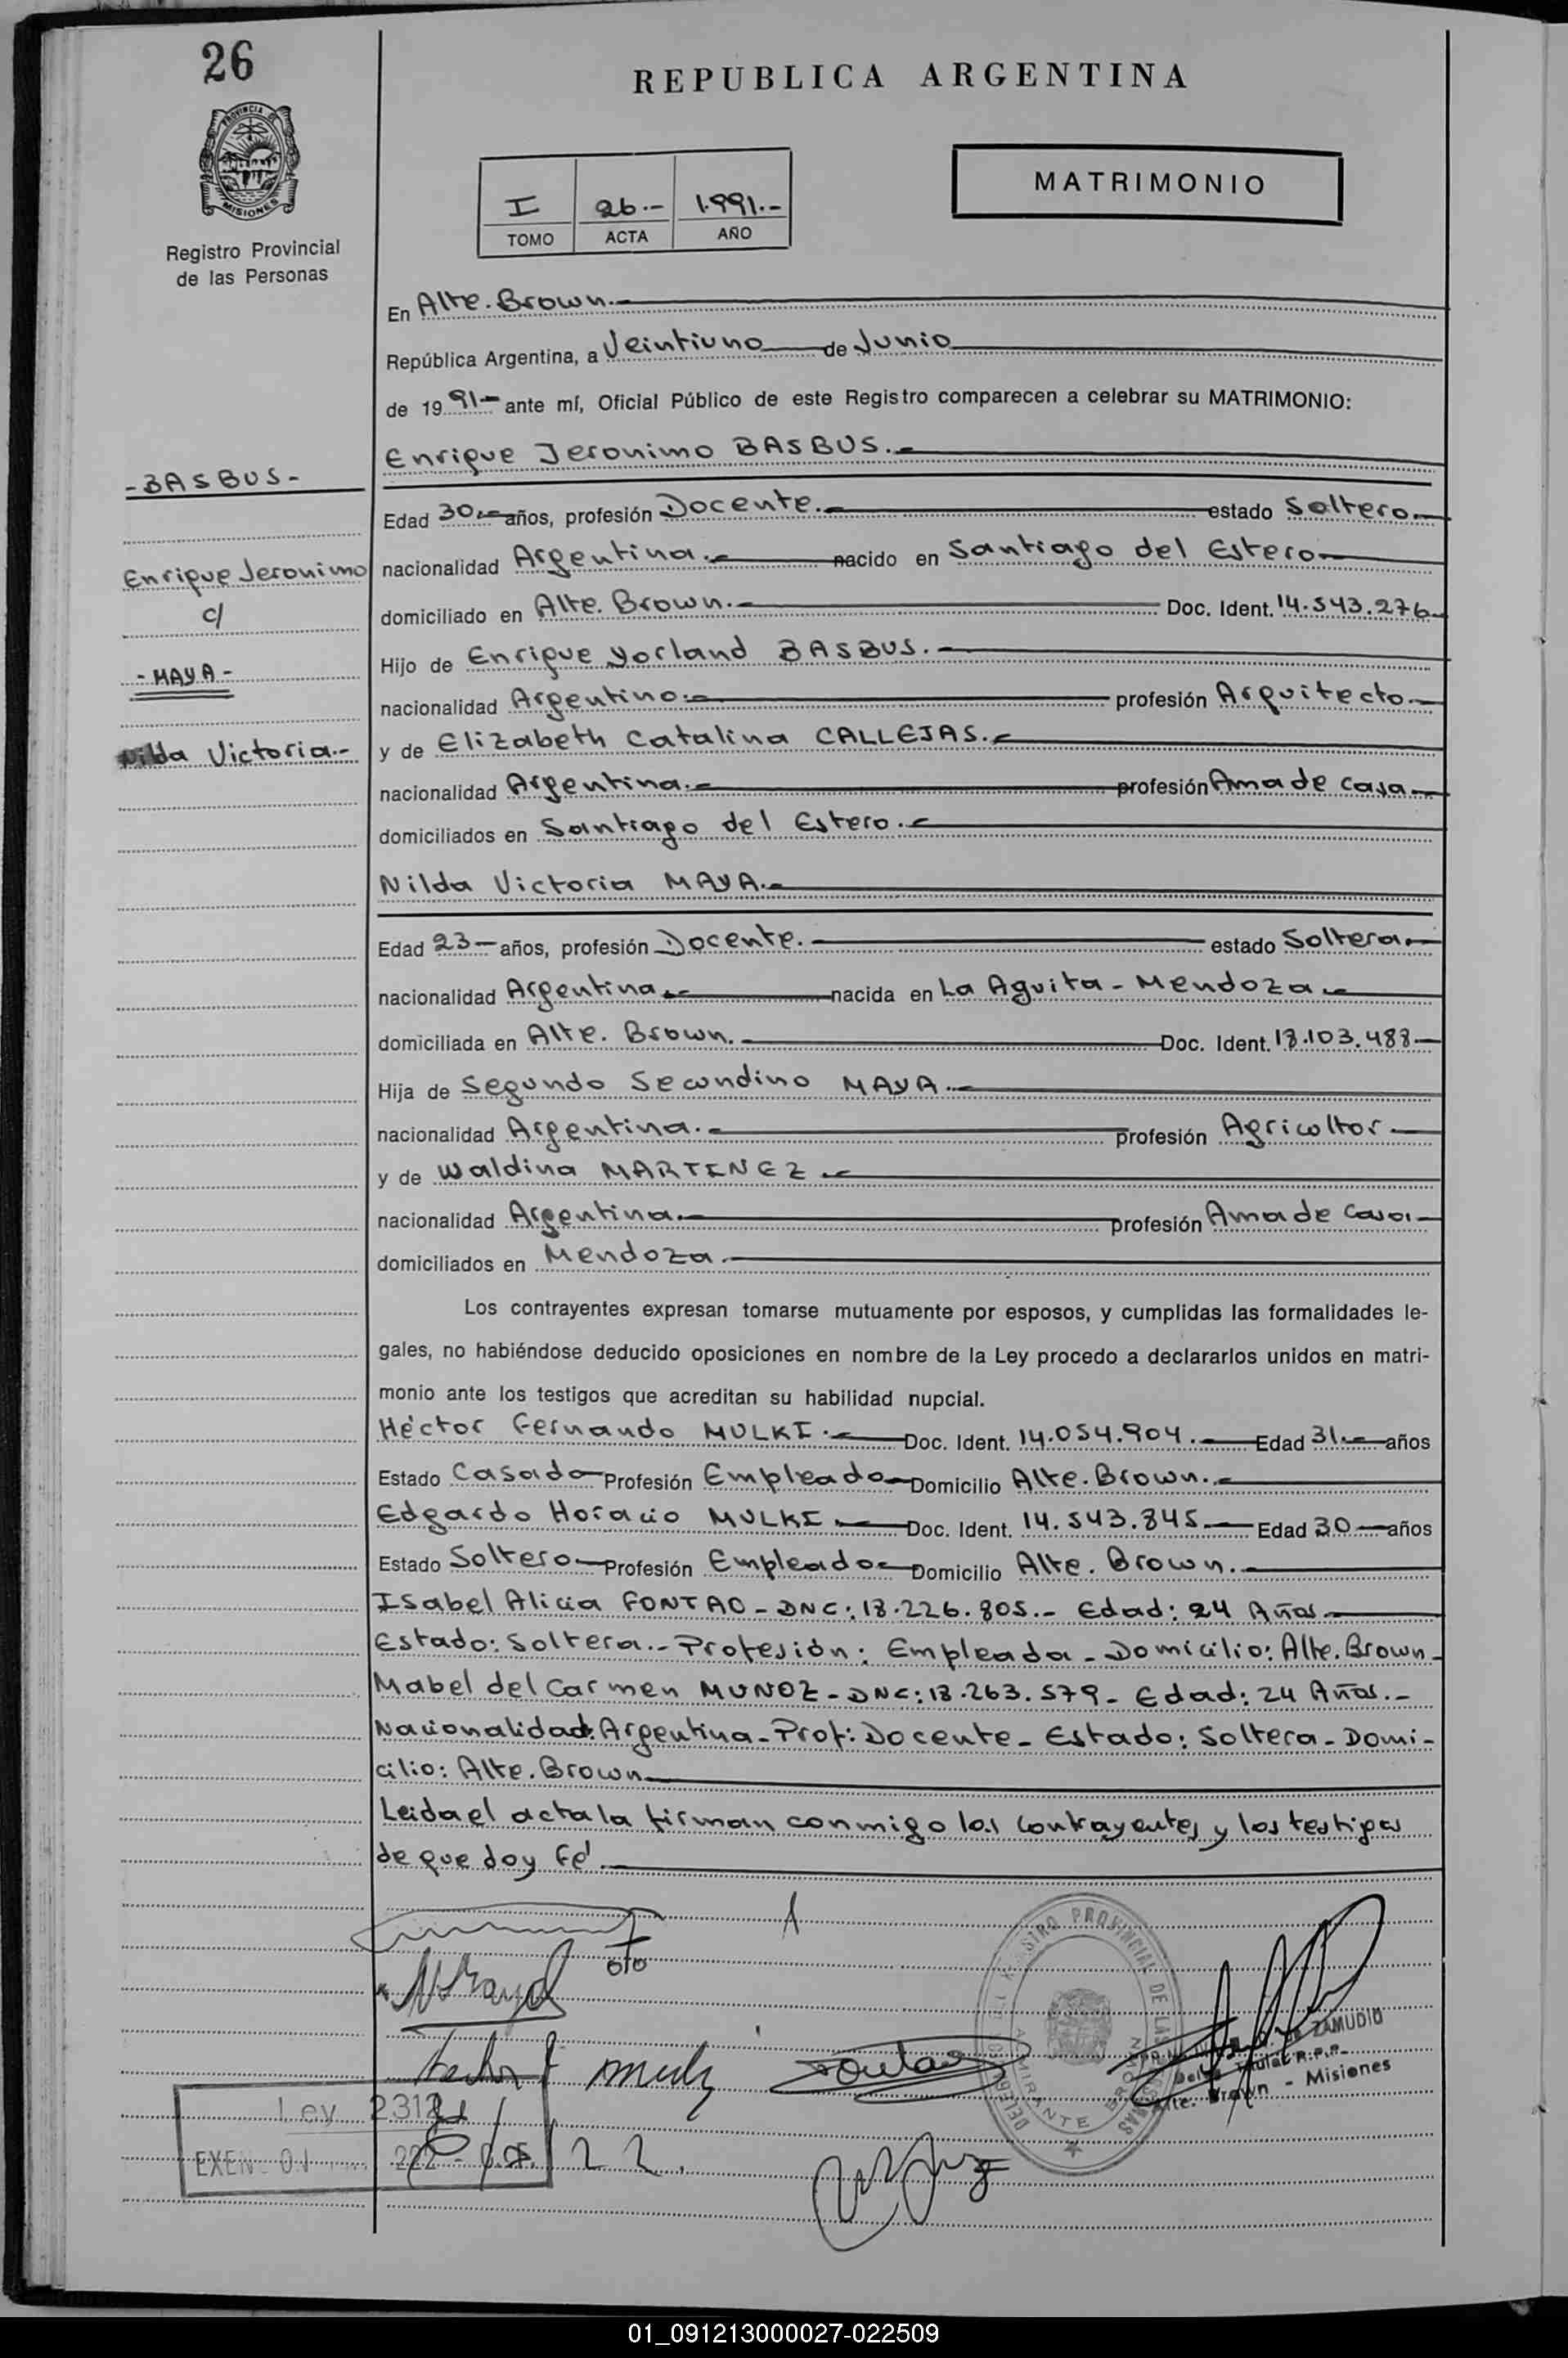 26
REPUBLICA ARGENTINA
PROVINCIA DE
MISIONES
Registro Provincial
de las Personas
I 26.- 1.991.-
TOMO ACTA AÑO
MATRIMONIO
En Alte. Brown.-
República Argentina, a Veintiuno de Junio
de 1991- ante mí, Oficial Público de este Registro comparecen a celebrar su MATRIMONIO:
Enrique Jeronimo BASBUS.-
-BASBUS-
Edad 30.- años, profesión Docente.- estado Soltero.-
Enrique Jeronimo
nacionalidad Argentina.- nacido en Santiago del Estero-
c/
domiciliado en Alte. Brown.- Doc. Ident. 14.543.276-
Hijo de Enrique Yorland BASBUS.-
-MAYA-
nacionalidad Argentino.- profesión Arquitecto-
Nilda Victoria-
y de Elizabeth Catalina CALLEJAS.-
nacionalidad Argentina.- profesión Ama de Casa-
domiciliados en Santiago del Estero.-
Nilda Victoria MAYA.-
Edad 23- años, profesión Docente.- estado Soltera.-
nacionalidad Argentina.- nacida en La Aguita - Mendoza.-
domiciliada en Alte. Brown.- Doc. Ident. 18.103.488-
Hija de Segundo Secundino MAYA.-
nacionalidad Argentina.- profesión Agricultor-
y de Waldina MARTINEZ.-
nacionalidad Argentina.- profesión Ama de Casa-
domiciliados en Mendoza.-
Los contrayentes expresan tomarse mutuamente por esposos, y cumplidas las formalidades le-
gales, no habiéndose deducido oposiciones en nombre de la Ley procedo a declararlos unidos en matri-
monio ante los testigos que acreditan su habilidad nupcial.
Héctor Fernando MULKI.- Doc. Ident. 14.054.904.- Edad 31.- años
Estado Casado- Profesión Empleado- Domicilio Alte. Brown.-
Edgardo Horacio MULKI.- Doc. Ident. 14.543.845.- Edad 30- años
Estado Soltero- Profesión Empleado- Domicilio Alte. Brown.-
Isabel Alicia FONTAO - DNC: 18.226.805.- Edad: 24 Años.-
Estado: Soltera.- Profesión: Empleada - Domicilio: Alte. Brown-
Mabel del Carmen MUNOZ - DNC: 18.263.579- Edad: 24 Años.-
Nacionalidad: Argentina - Prof: Docente - Estado: Soltera - Domi-
cilio: Alte. Brown-
Leida el acta la firman conmigo los contrayentes y los testigos
de que doy fé.-
DE ZAMUDIO
Titular R.P.P.
Alte. Brown - Misiones
REGISTRO PROVINCIAL DE LAS PERSONAS
ALMIRANTE BROWN
Ley 2312
01_091213000027-022509